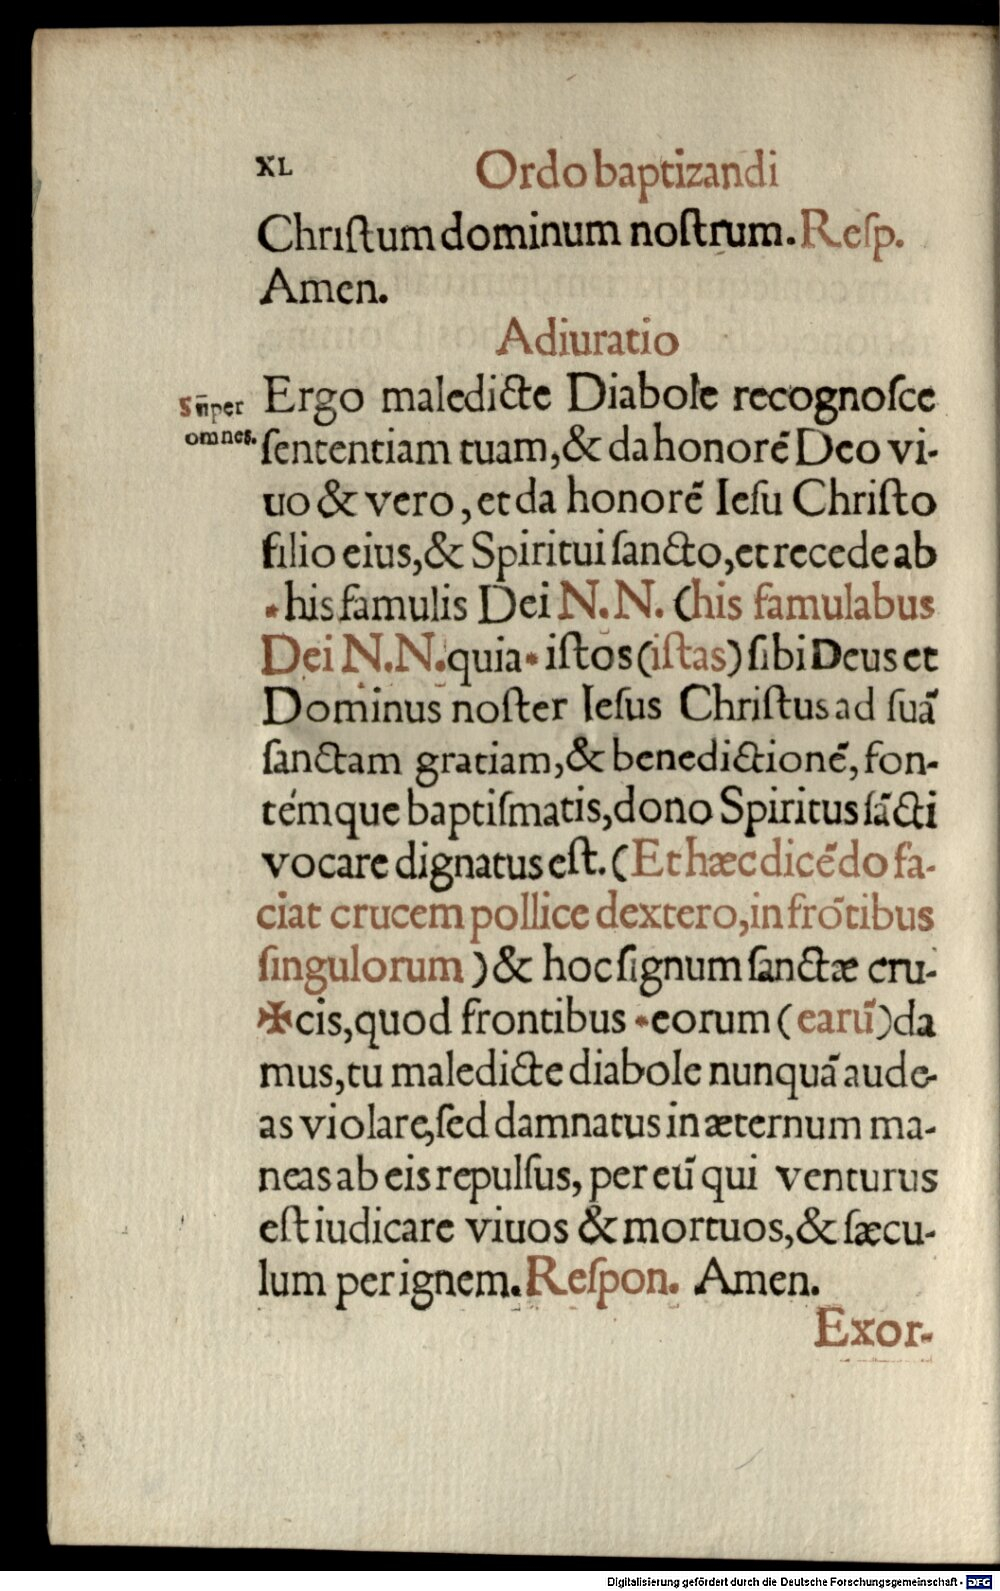 XL Ordo baptizandi
Chriſtum dominum noſtrum. Reſp.
Amen.
Adiuratio
Ergo maledicte Diabole recognoſce
omnes. ſententiam tuam, & da honorē Deo vi-
uo & vero, et da honorē Ieſu Chriſto
filio eius, & Spiritui ſancto, et recede ab
*his famulis Dei N. N. (his famulabus
Dei N. N. quia * iſtos (iſtas) ſibi Deus et
Dominus noſter Ieſus Chriſtus ad ſuā
ſanctam gratiam, & benedictionē, fon-
témque baptiſmatis, dono Spiritus ſācti
vocare dignatus eſt. (Et hæc dicēdo fa-
ciat crucem pollice dextero, in frōtibus
ſingulorum) & hoc ſignum ſanctæ cru-
✠cis, quod frontibus *eorum (earū) da
mus, tu maledicte diabole nunquā aude-
as violare, ſed damnatus in æternum ma-
neas ab eis repulſus, per eū qui venturus
eſt iudicare viuos & mortuos, & ſæcu-
lum per ignem. Reſpon. Amen.
Exor-
Digitalisierung gefördert durch die Deutsche Forschungsgemeinschaft - DFG